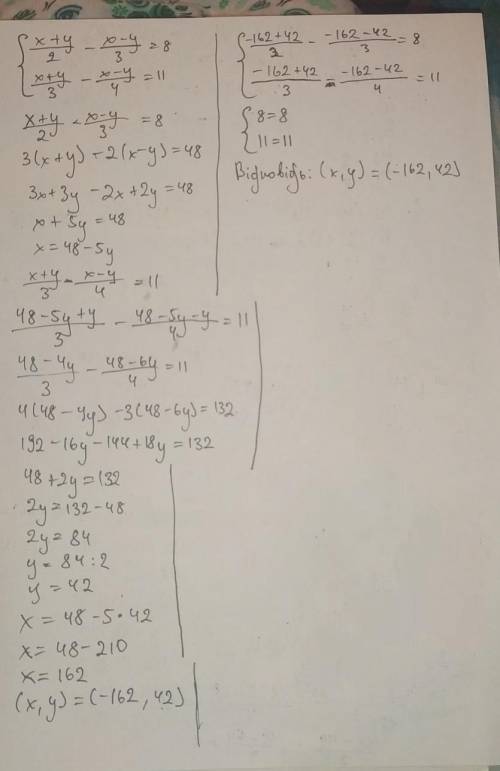 { (x+y)/2 - (x-y)/3 = 8
(x+y)/3 - (x-y)/4 = 11
(x+y)/2 - (x-y)/3 = 8
3(x+y) - 2(x-y) = 48
3x+3y - 2x+2y = 48
x + 5y = 48
x = 48 - 5y
(x+y)/3 - (x-y)/4 = 11
(48-5y+y)/3 - (48-5y-y)/4 = 11
(48-4y)/3 - (48-6y)/4 = 11
4(48-4y) - 3(48-6y) = 132
192 - 16y - 144 + 18y = 132
48 + 2y = 132
2y = 132 - 48
2y = 84
y = 84 : 2
y = 42
x = 48 - 5·42
x = 48 - 210
x = 162
(x, y) = (-162, 42)
{ (-162+42)/2 - (-162-42)/3 = 8
(-162+42)/3 - (-162-42)/4 = 11
{ 8 = 8
11 = 11
Відповідь: (x, y) = (-162, 42)